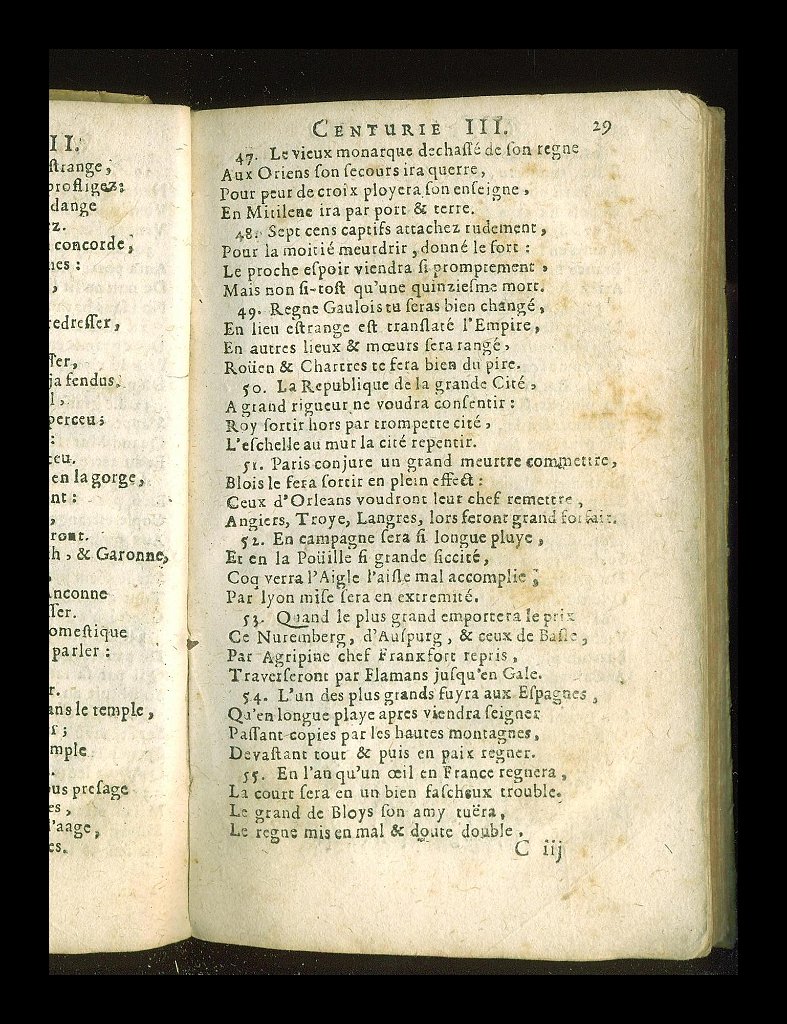 II.
ſtrange,
profligez:
dange
z.
concorde,
nes :
,
redreſſer,
ſſer,
ja fendus.
l,
perceu;
:
ceu.
en la gorge,
nt :
,
ront.
h, & Garonne,
.
Anconne
ſſer.
omeſtique
parler :
r.
ans le temple,
s;
mple
.
us preſage
es,
l'aage,
es.
CENTURIE III. 29
47. Le vieux monarque dechaſſé de ſon regne
Aux Oriens ſon ſecours ira querre,
Pour peur de croix ployera ſon enſeigne,
En Mitilene ira par port & terre.
48. Sept cens captifs attachez rudement,
Pour la moitié meurdrir, donné le ſort :
Le proche eſpoir viendra ſi promptement,
Mais non ſi-toſt qu'une quinzieſme mort.
49. Regne Gaulois tu ſeras bien changé,
En lieu eſtrange eſt tranſlaté l'Empire,
En autres lieux & mœurs ſera rangé,
Roüen & Chartres te fera bien du pire.
50. La Republique de la grande Cité,
A grand rigueur ne voudra conſentir :
Roy ſortir hors par trompette cité,
L'eſchelle au mur la cité repentir.
51. Paris conjure un grand meurtre commettre,
Blois le fera ſortir en plein effect :
Ceux d'Orleans voudront leur chef remettre,
Angiers, Troye, Langres, lors feront grand forfait.
52. En campagne ſera ſi longue pluye,
Et en la Poüille ſi grande ſiccité,
Coq verra l'Aigle l'aiſle mal accomplie,
Par lyon miſe ſera en extremité.
53. Quand le plus grand emportera le prix
Ce Nuremberg, d'Auſpurg, & ceux de Baſle,
Par Agripine chef Frankfort repris,
Traverſeront par Flamans juſqu'en Gale.
54. L'un des plus grands fuyra aux Eſpagnes,
Qu'en longue playe apres viendra ſeigner
Paſſant copies par les hautes montagnes,
Devaſtant tout & puis en paix regner.
55. En l'an qu'un œil en France regnera,
La court ſera en un bien faſcheux trouble.
Le grand de Bloys ſon amy tuëra,
Le regne mis en mal & doute double,
C iij